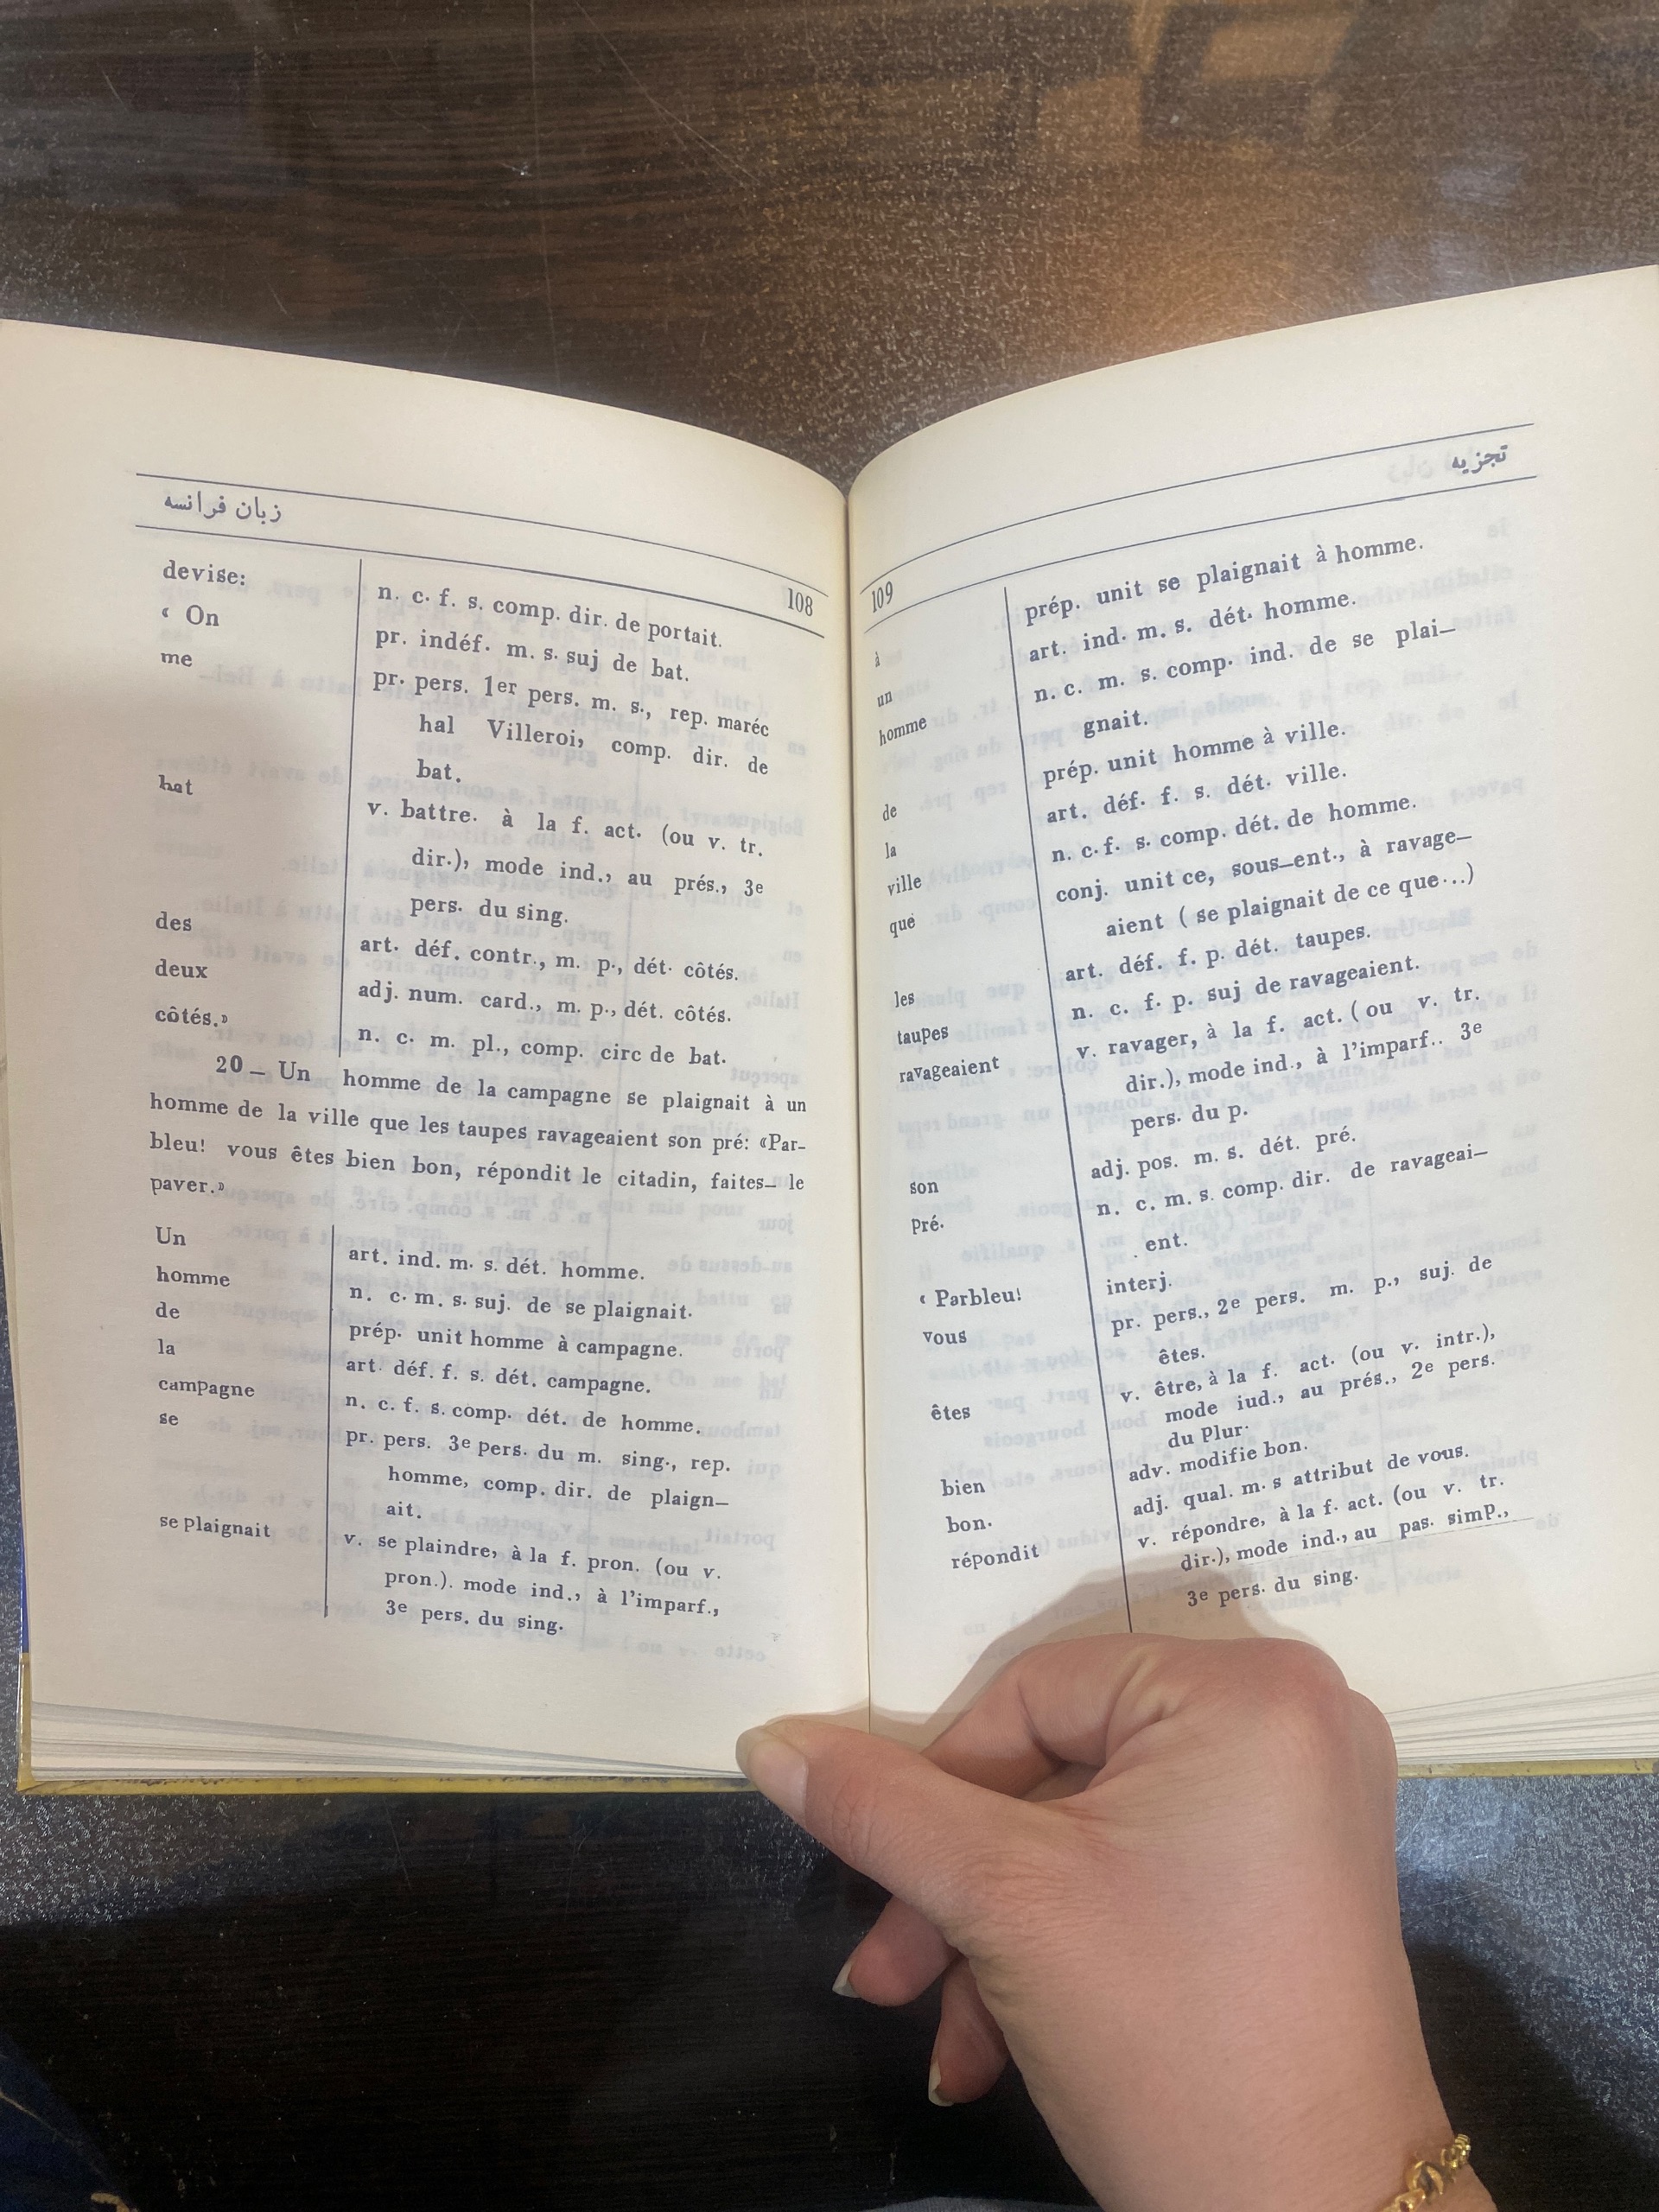 زبان فرانسه
108
devise: n. c. f. s. comp. dir. de portait.
‹ On pr. indéf. m. s. suj de bat.
me pr. pers. 1er pers. m. s., rep. maréc
hal Villeroi, comp. dir. de
bat.
bat v. battre. à la f. act. (ou v. tr.
dir.), mode ind., au prés., 3e
pers. du sing.
des art. déf. contr., m. p., dét. côtés.
deux adj. num. card., m. p., dét. côtés.
côtés.» n. c. m. pl., comp. circ de bat.
20 — Un homme de la campagne se plaignait à un
homme de la ville que les taupes ravageaient son pré: «Par-
bleu! vous êtes bien bon, répondit le citadin, faites— le
paver.»
Un art. ind. m. s. dét. homme.
homme n. c. m. s. suj. de se plaignait.
de prép. unit homme à campagne.
la art. déf. f. s. dét. campagne.
campagne n. c. f. s. comp. dét. de homme.
se pr. pers. 3e pers. du m. sing., rep.
homme, comp. dir. de plaign—
ait.
se plaignait v. se plaindre, à la f. pron. (ou v.
pron.). mode ind., à l'imparf.,
3e pers. du sing.
تجزیه
109
à prép. unit se plaignait à homme.
un art. ind. m. s. dét. homme.
homme n. c. m. s. comp. ind. de se plai—
gnait.
de prép. unit homme à ville.
la art. déf. f. s. dét. ville.
ville n. c. f. s. comp. dét. de homme.
que conj. unit ce, sous—ent., à ravage—
aient ( se plaignait de ce que...)
les art. déf. f. p. dét. taupes.
taupes n. c. f. p. suj de ravageaient.
ravageaient v. ravager, à la f. act. ( ou v. tr.
dir.), mode ind., à l'imparf.. 3e
pers. du p.
son adj. pos. m. s. dét. pré.
pré. n. c. m. s. comp. dir. de ravageai—
ent.
‹ Parbleu! interj.
vous pr. pers., 2e pers. m. p., suj. de
êtes.
êtes v. être, à la f. act. (ou v. intr.),
mode iud., au prés., 2e pers.
du Plur.
bien adv. modifie bon.
bon. adj. qual. m. s attribut de vous.
répondit v. répondre, à la f. act. (ou v. tr.
dir.), mode ind., au pas. simp.,
3e pers. du sing.